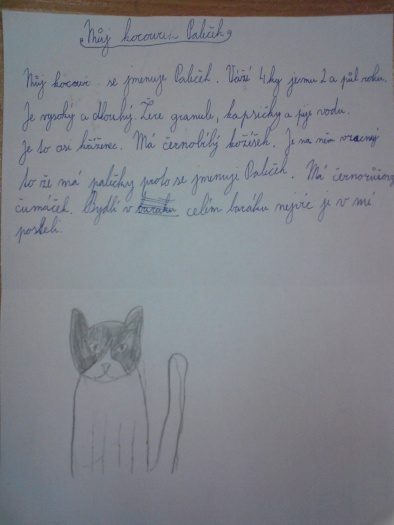 Můj kocourek Palíček
Můj kocour se jmenuje Palíček. Váží 4 kg jemu 2 a půl roku.
Je vysoký a dlouhý. Žere granule, kapsičky a pije vodu.
Je to asi kříženec. Má černobílý kožíšek. Je na něm vzácný
to že má paličky proto se jmenuje Palíček. Má černorůžový
čumáček. Bydlí v celím baráku nejvíc je v mé
posteli.